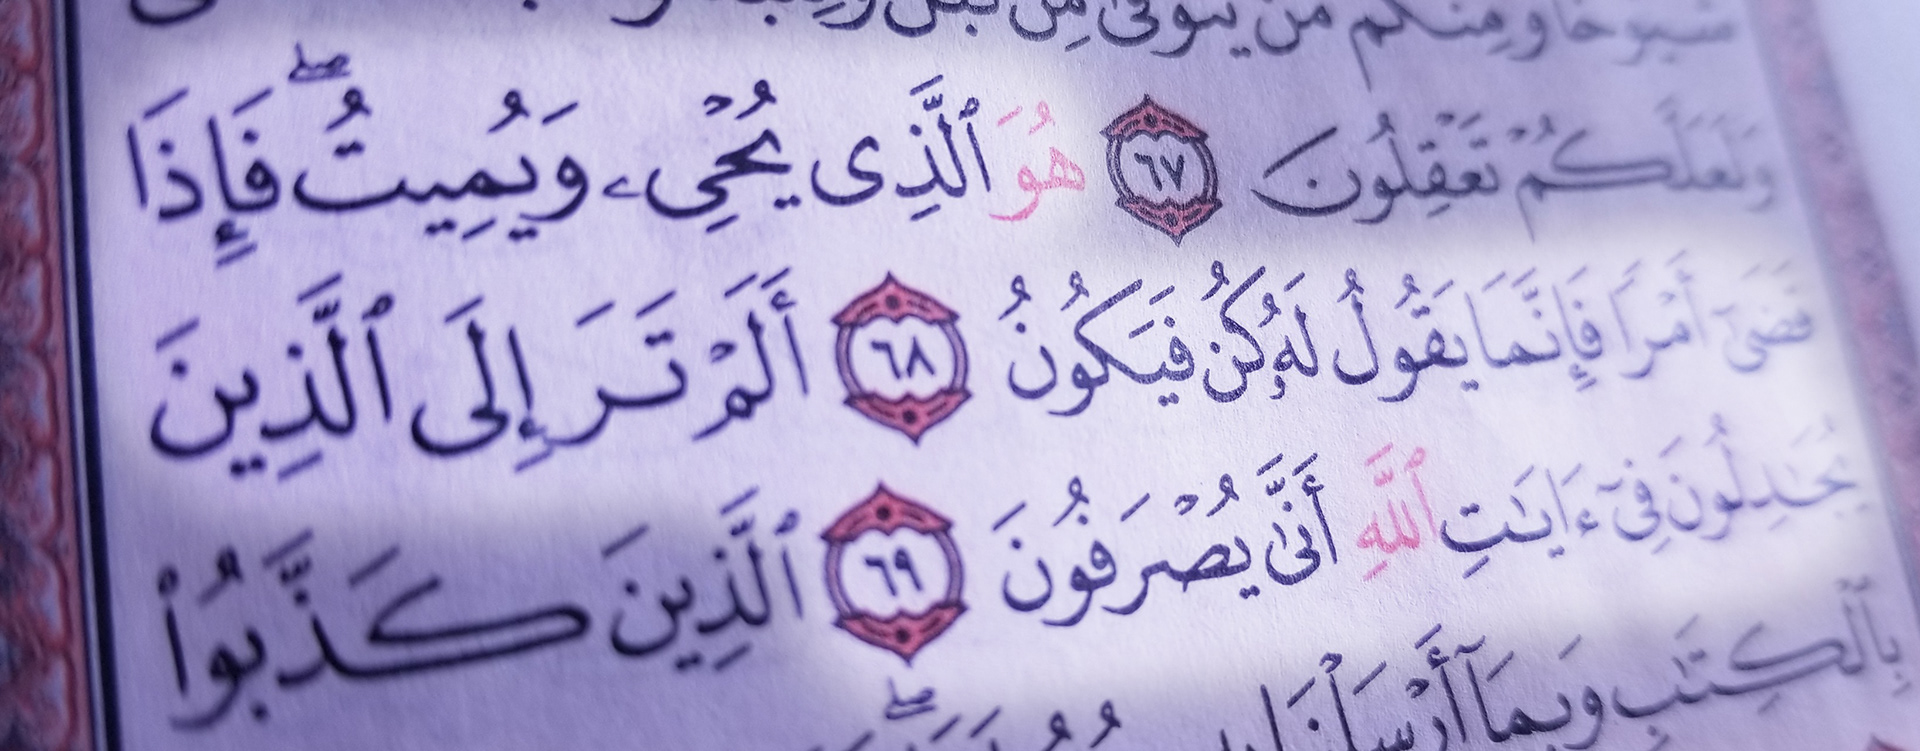 شُيُوخًا وَمِنكُم مَّن يُتَوَفَّىٰ مِن قَبْلُ
وَلَعَلَّكُمْ تَعْقِلُونَ ٦٧ هُوَ ٱلَّذِى يُحْىِۦ وَيُمِيتُ ۖ فَإِذَا
قَضَىٰٓ أَمْرًا فَإِنَّمَا يَقُولُ لَهُۥ كُن فَيَكُونُ ٦٨ أَلَمْ تَرَ إِلَى ٱلَّذِينَ
يُجَٰدِلُونَ فِىٓ ءَايَٰتِ ٱللَّهِ أَنَّىٰ يُصْرَفُونَ ٦٩ ٱلَّذِينَ كَذَّبُوا۟
بِٱلْكِتَٰبِ وَبِمَآ أَرْسَلْنَا